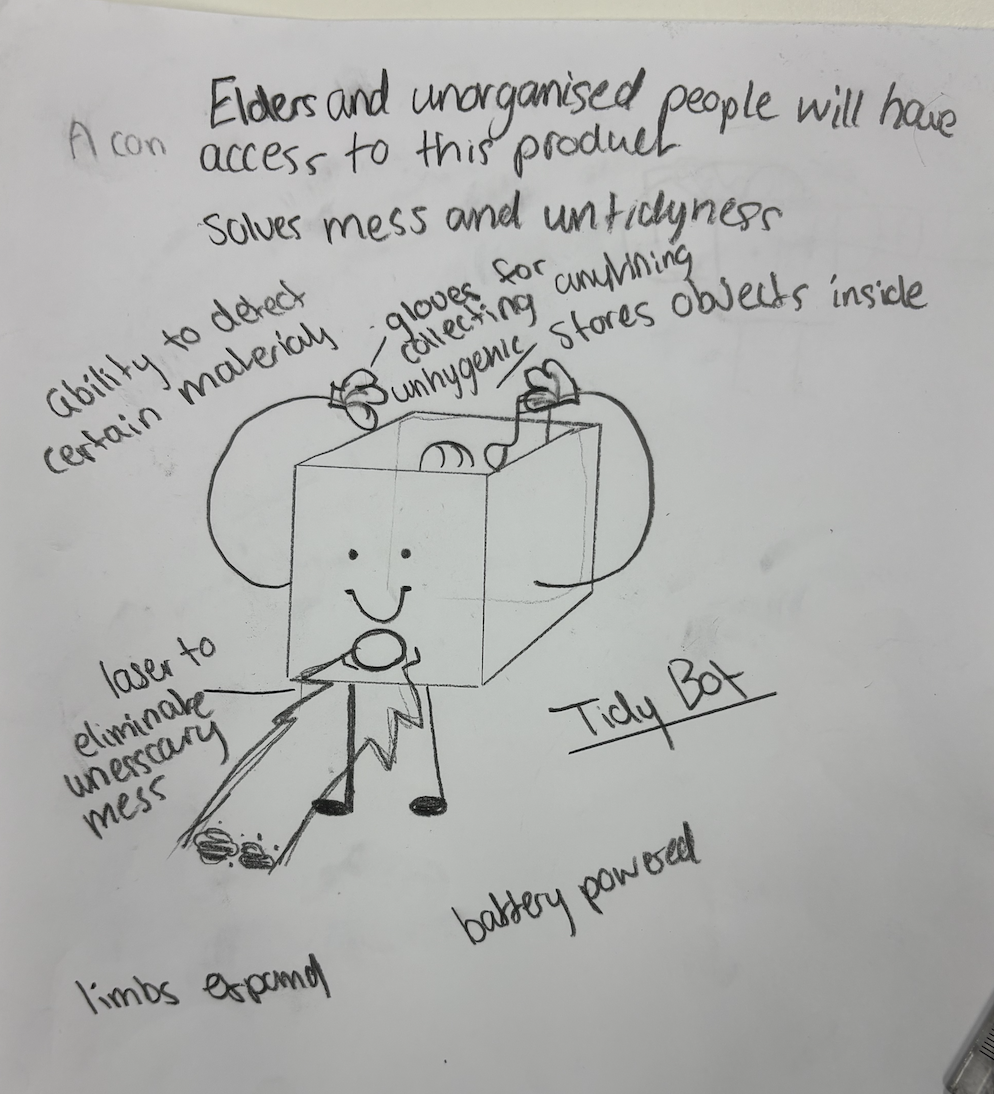 Elders and unorganised people will have
A con access to this product
solves mess and untidyness
ability to detect
certain materials
gloves for
collecting anything
unhygenic
stores objects inside
laser to
eliminate
unesscary
mess
Tidy Bot
battery powered
limbs expand